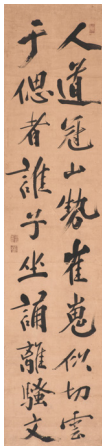 人道冠山勢崔嵬似切雲
于偲者誰子坐誦離騷文